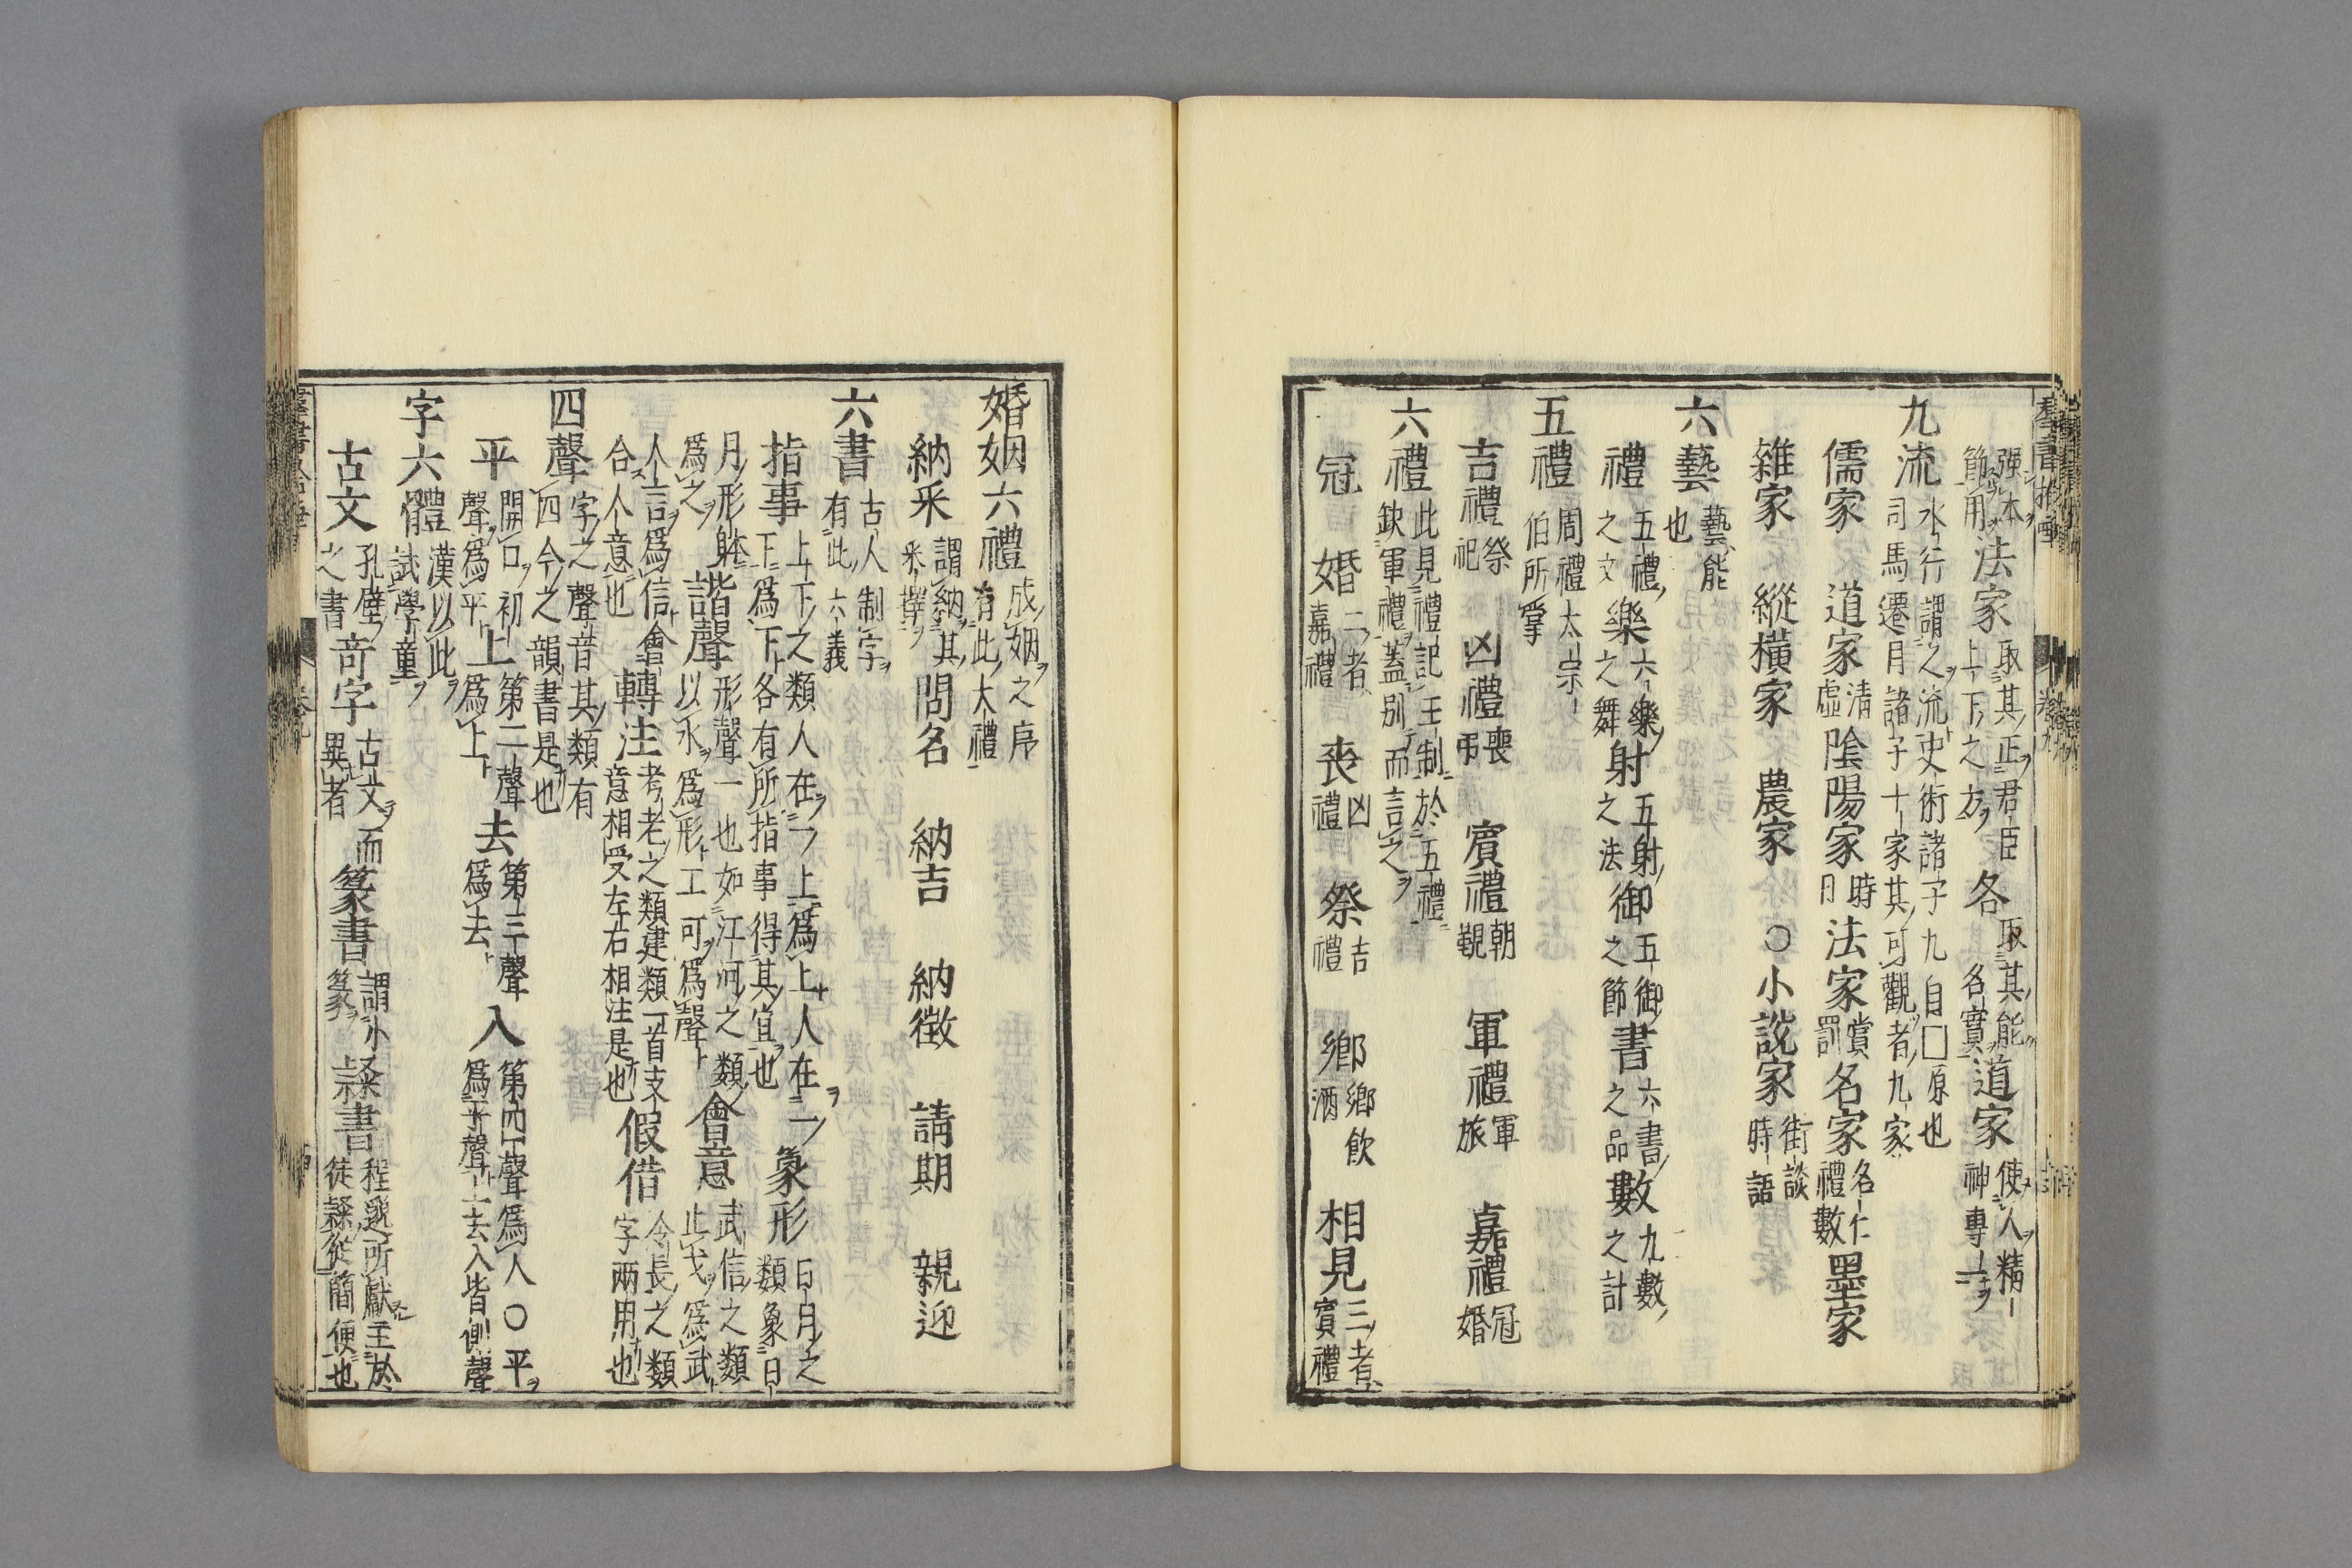 强本節用法家取其正君臣上下之方各取其能名實道家使人精神專一
九流水行謂之流史術諸子九自□原也司馬遷月諸子十家其可觀者九家
儒家 道家清虛陰陽家時日法家賞罰名家名仁禮數墨家
雜家 縱橫家 農家 ○小說家街談時語
六藝藝能也
禮五禮之文樂六樂之舞射五射之法御五御之節書六書之品數九數之計
五禮周禮太宗伯所掌
吉禮祭祀 凶禮喪弔 賓禮朝覲 軍禮軍旅 嘉禮冠婚
六禮此見禮記王制於五禮缺軍禮蓋別而言之
冠 婚二者嘉禮 喪凶禮 祭吉禮 鄉鄉飲酒 相見三者賓禮
婚姻六禮成婣之序有此大禮
納采謂納其采擇問名 納吉 納徵 請期 親迎
六書古人制字有此六義
指事上下之類人在一上爲上人在一下爲下各有所指事得其宜也象形日月之類象日
月形躰諧聲形聲一也如江河之類以水爲形工可爲聲會意武信之類止戈爲武
人言爲信會合人意也轉注考老之類建類一首支意相受左右相注是也假借令長之類字兩用也
四聲字之聲音其類有四今之韻書是也
平開口初聲爲平上第二聲爲上去第三聲爲去入第四聲爲人○平爲平聲上去入皆側聲
字六體漢以此試學童
古文孔壁之書奇字古文而異者篆書謂小篆隸書程邈所獻主於徒隸從簡便也